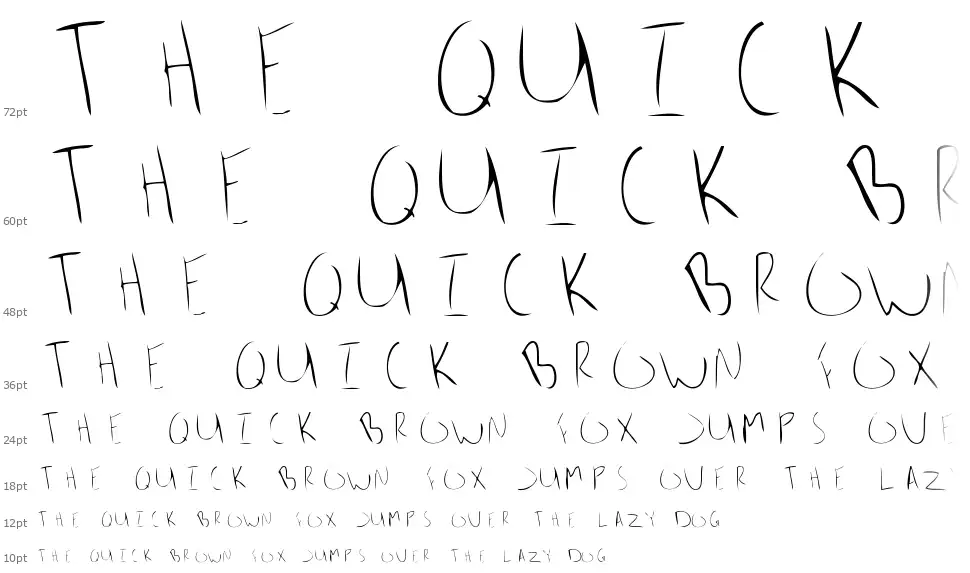 72pt THE QUICK
60pt THE QUICK BR
48pt THE QUICK BROWN
36pt THE QUICK BROWN FOX
24pt THE QUICK BROWN FOX JUMPS OVE
18pt THE QUICK BROWN FOX JUMPS OVER THE LAZ
12pt THE QUICK BROWN FOX JUMPS OVER THE LAZY DOG
10pt THE QUICK BROWN FOX JUMPS OVER THE LAZY DOG